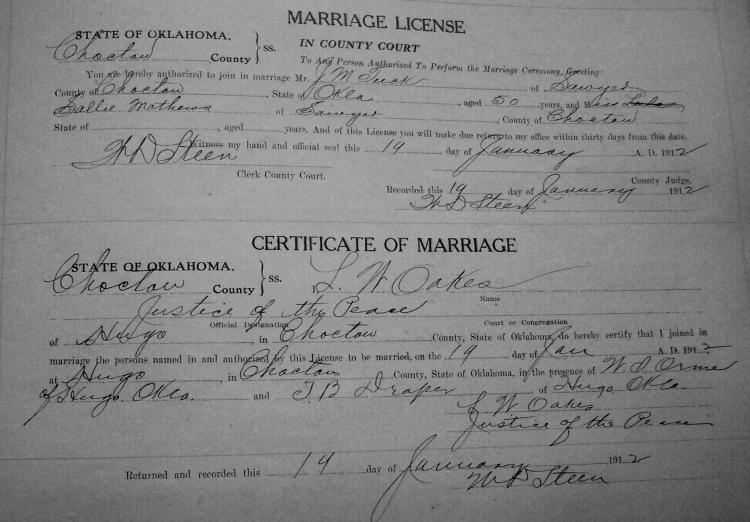 MARRIAGE LICENSE
STATE OF OKLAHOMA, } ss. IN COUNTY COURT
Choctaw County To Any Person Authorized To Perform the Marriage Ceremony, Greeting:
You are hereby authorized to join in marriage Mr. J M Tuck of Sawyer
County of Choctaw, State of Okla, aged 50 years, and Miss
Sallie Mathews of Sawyer, County of Choctaw
State of, aged years. And of this License you will make due return to my office within thirty days from this date.
Witness my hand and official seal this 19 day of January A. D. 1912
W D Steen
Clerk County Court. County Judge.
Recorded this 19 day of January 1912
W D Steen
CERTIFICATE OF MARRIAGE
STATE OF OKLAHOMA, } ss.
Choctaw County I L. W Oakes
Name
Justice of the Peace
Official Designation Court or Congregation
of Hugo, in Choctaw County, State of Oklahoma, do hereby certify that I joined in
marriage the persons named in and authorized by this License to be married, on the 19 day of Jan A. D. 1912
at Hugo, in Choctaw County, State of Oklahoma, in the presence of W. Orme
of Hugo Okla. and T B Draper of Hugo Okla.
L W Oakes
Justice of the Peace
Returned and recorded this 19 day of January 1912
W D Steen